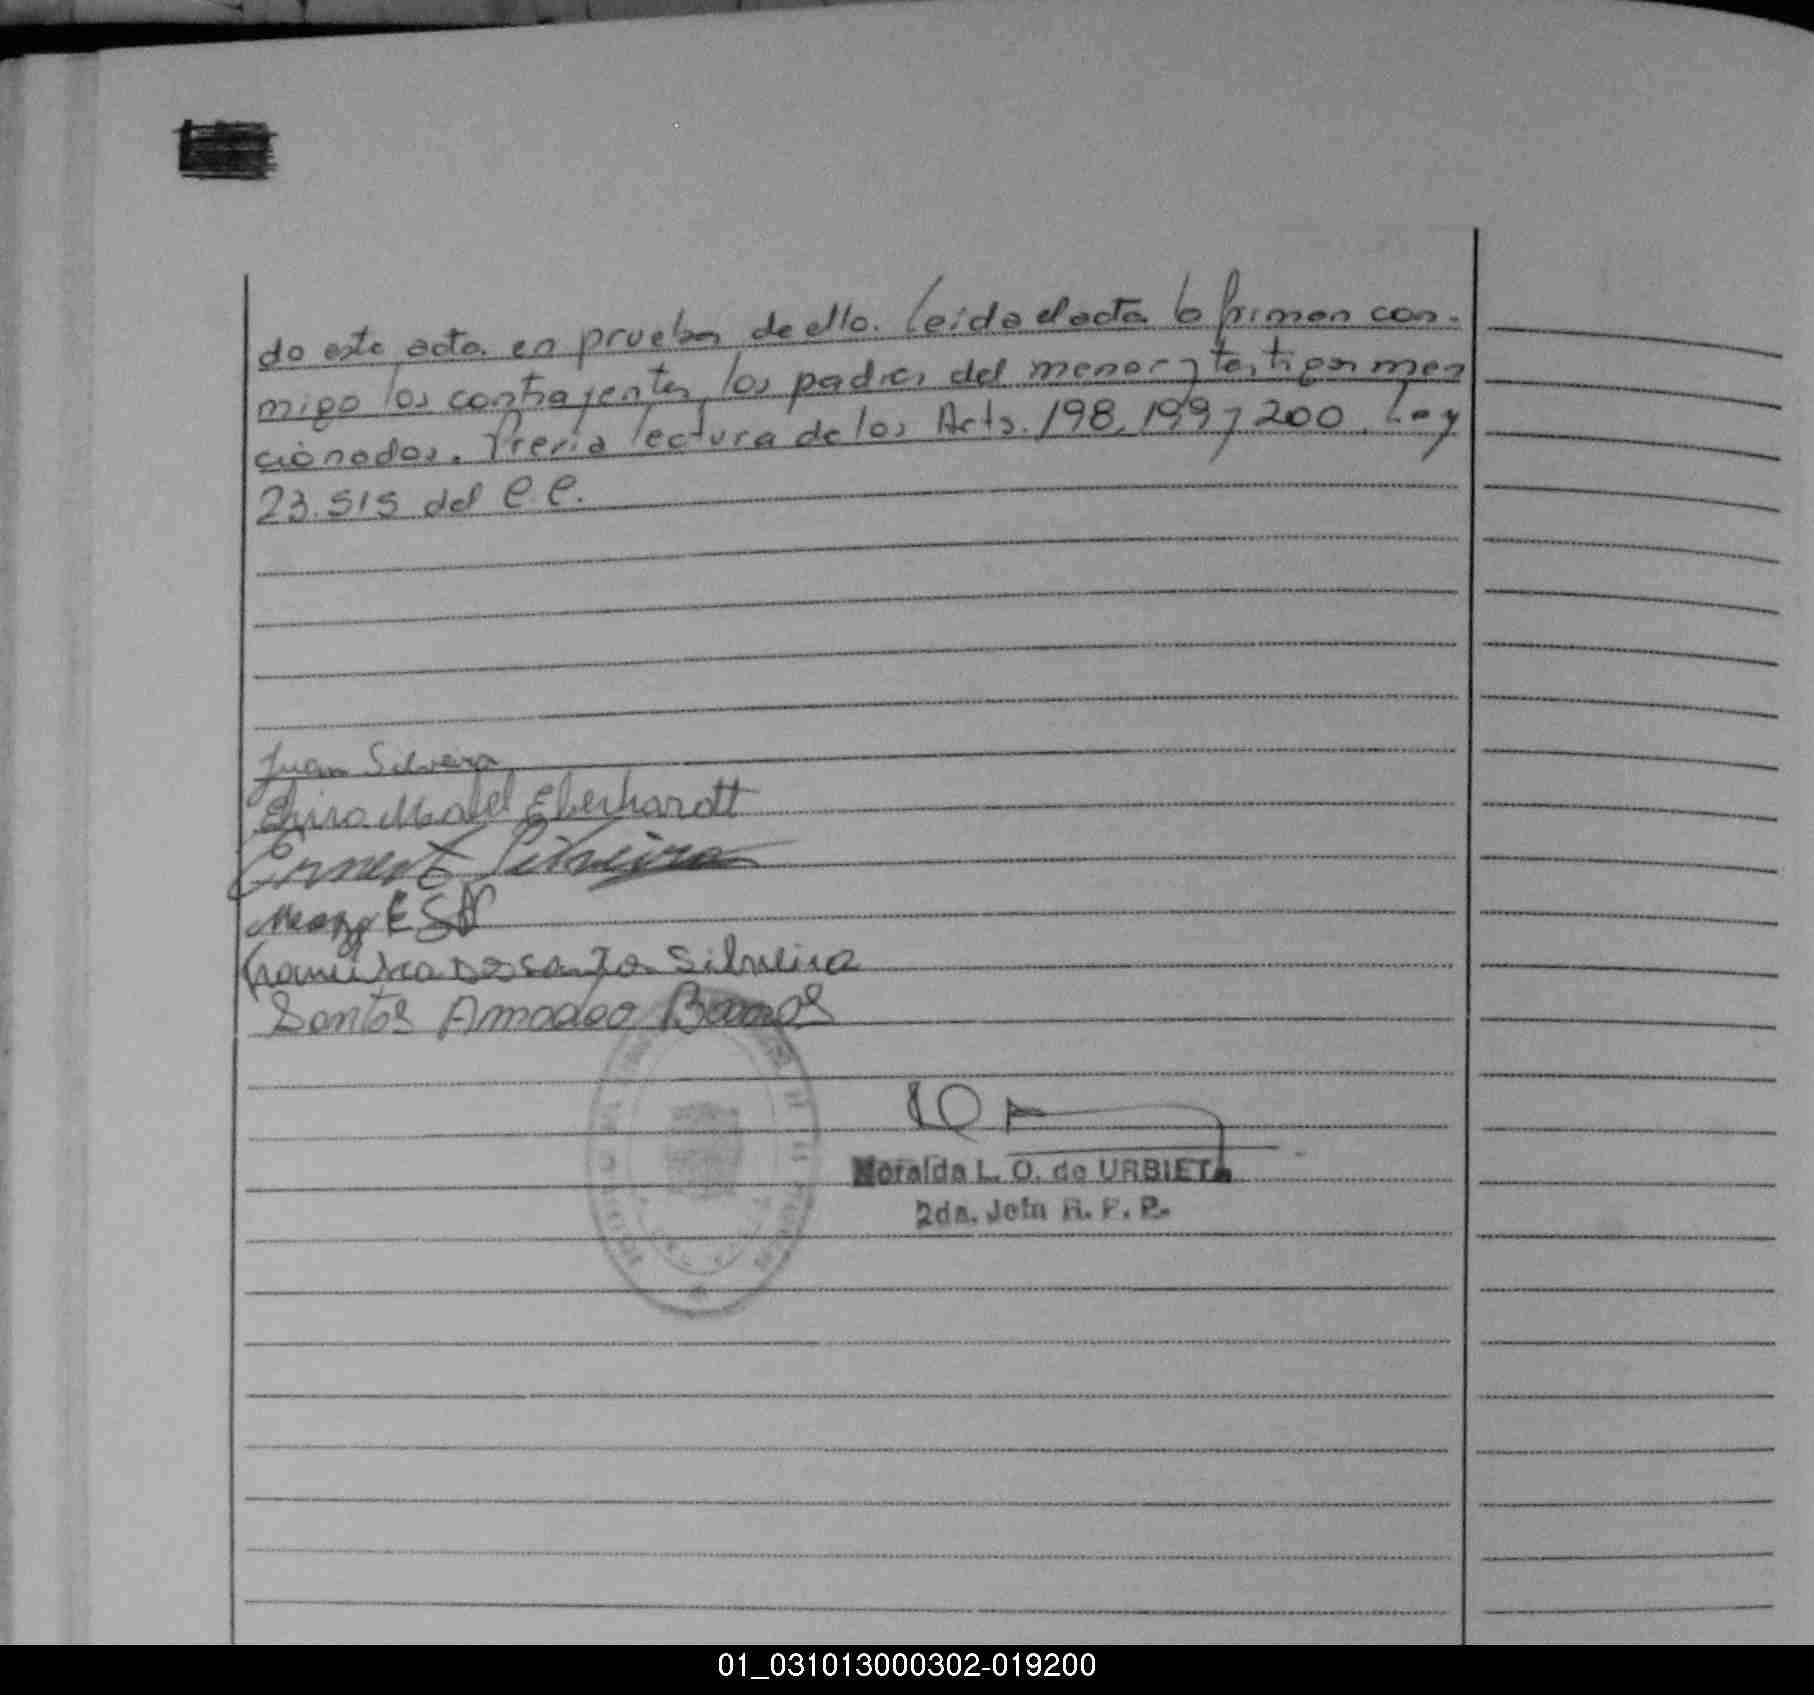 do este acta en prueba de ello. Leida el acta la firman con-
migo los contrayentes, los padres del menor y testigos men
cionados. Previa lectura de los Arts. 198, 199 y 200. Ley
23.515 del C.C.
Juan Silveira
Mabel Eberhardt
Ernest Silveira
Silveira
Santos Amadeo
L. O. de URBIETA
2da. Jefa R. P. P.
01_031013000302-019200